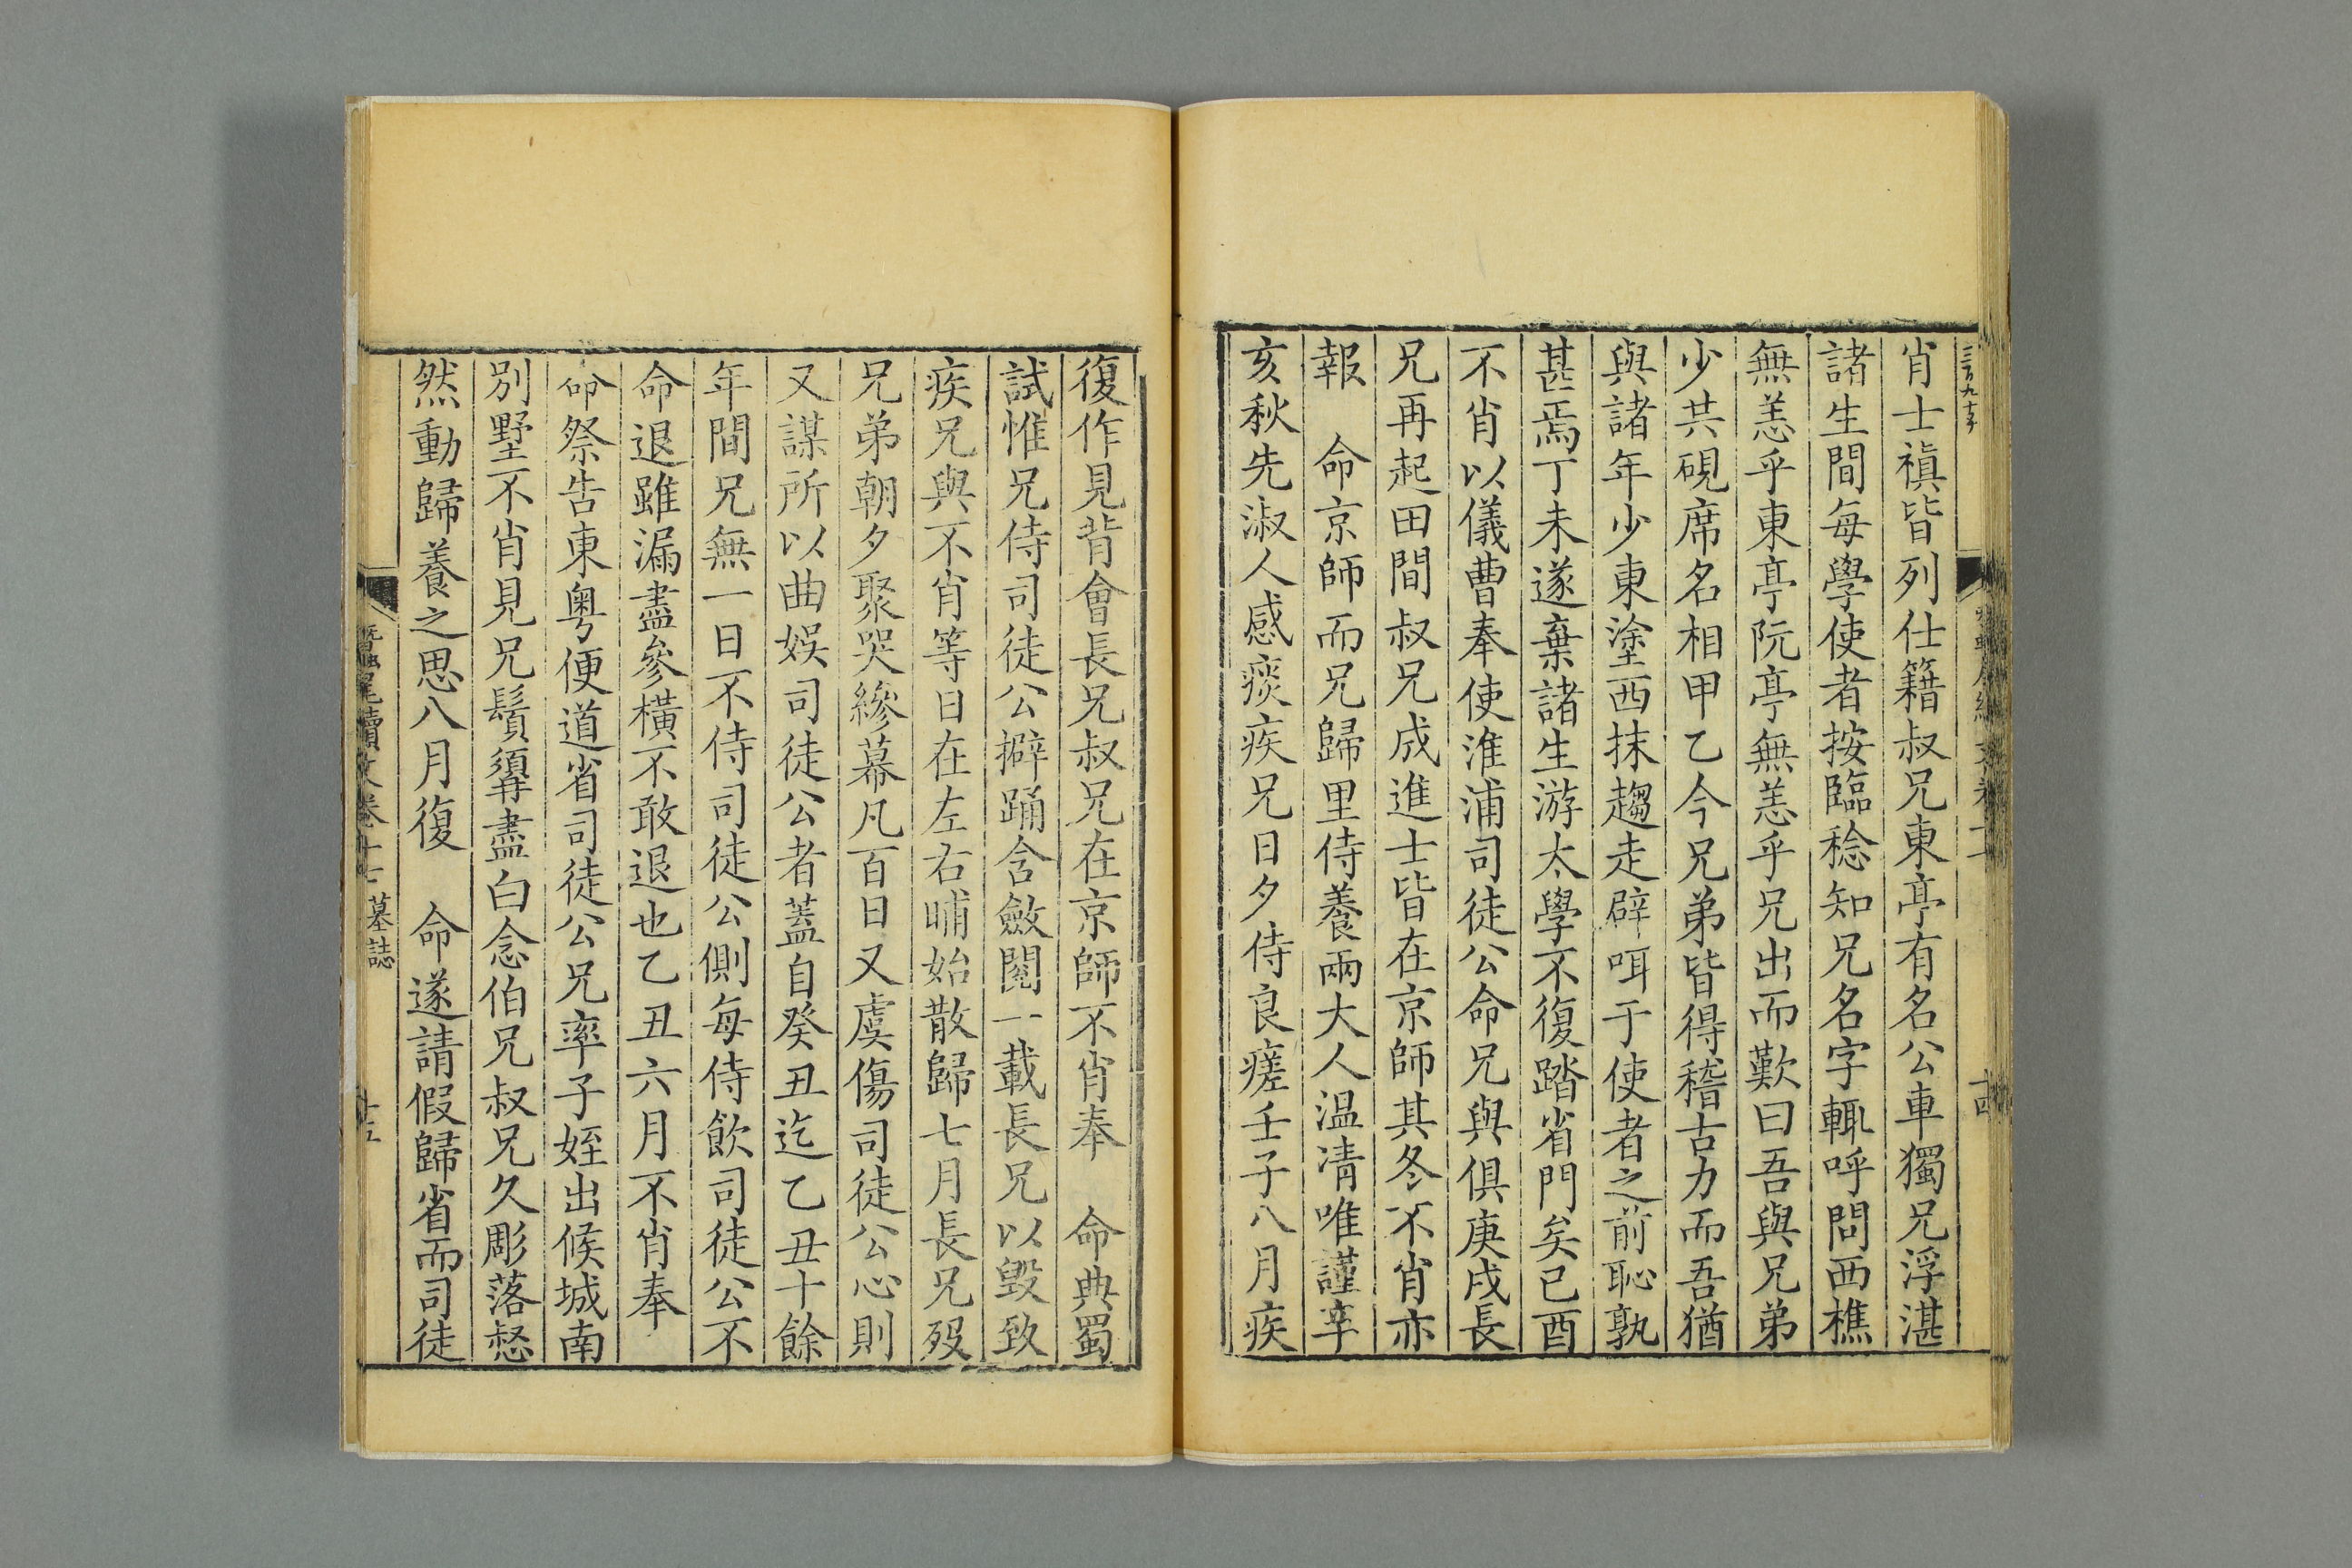 肖士禛皆列仕籍叔兄東亭有名公車獨兄浮湛
諸生間每學使者按臨稔知兄名字輒呼問西樵
無恙乎東亭阮亭無恙乎兄出而歎曰吾與兄弟
少共硯席名相甲乙今兄弟皆得稽古力而吾猶
與諸年少東塗西抹趨走辟咡于使者之前恥孰
甚焉丁未遂棄諸生游太學不復踏省門矣己酉
不肖以儀曹奉使淮浦司徒公命兄與俱庚戌長
兄再起田間叔兄成進士皆在京師其冬不肖亦
報　命京師而兄歸里侍養兩大人温凊唯謹辛
亥秋先淑人感痰疾兄日夕侍良瘥壬子八月疾
十四
復作見背會長兄叔兄在京師不肖奉　命典蜀
試惟兄侍司徒公擗踊含斂閱一載長兄以毀致
疾兄與不肖等日在左右晡始散歸七月長兄歿
兄弟朝夕聚哭縿幕凡百日又虞傷司徒公心則
又謀所以曲娱司徒公者蓋自癸丑迄乙丑十餘
年間兄無一日不侍司徒公側每侍飲司徒公不
命退雖漏盡參橫不敢退也乙丑六月不肖奉
命祭告東粤便道省司徒公兄率子姪出候城南
別墅不肖見兄鬚鬢盡白念伯兄叔兄久彫落惄
然動歸養之思八月復　命遂請假歸省而司徒
蠶尾續文卷十七　墓誌　十五